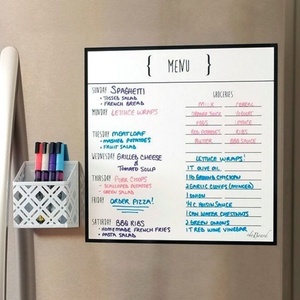 { MENU }
SUNDAY SPAGHETTI
• TOSSED SALAD
• FRENCH BREAD
MONDAY LETTUCE WRAPS
TUESDAY MEATLOAF
• MASHED POTATOES
• FRUIT SALAD
WEDNESDAY GRILLED CHEESE
&
TOMATO SOUP
THURSDAY PORK CHOPS
• SCALLOPED POTATOES
• GREEN SALAD
FRIDAY ORDER PIZZA!
SATURDAY BBQ RIBS
• HOMEMADE FRENCH FRIES
• PASTA SALAD
GROCERIES
MILK CEREAL
RIBS
BUTTER BBQ SAUCE
LETTUCE WRAPS!
1T OLIVE OIL
1 LB GROUND CHICKEN
2 GARLIC CLOVES (MINCED)
1 ONION
1/4 C HOISIN SAUCE
1 CAN WATER CHESTNUTS
2 GREEN ONIONS
1T RED WINE VINEGAR